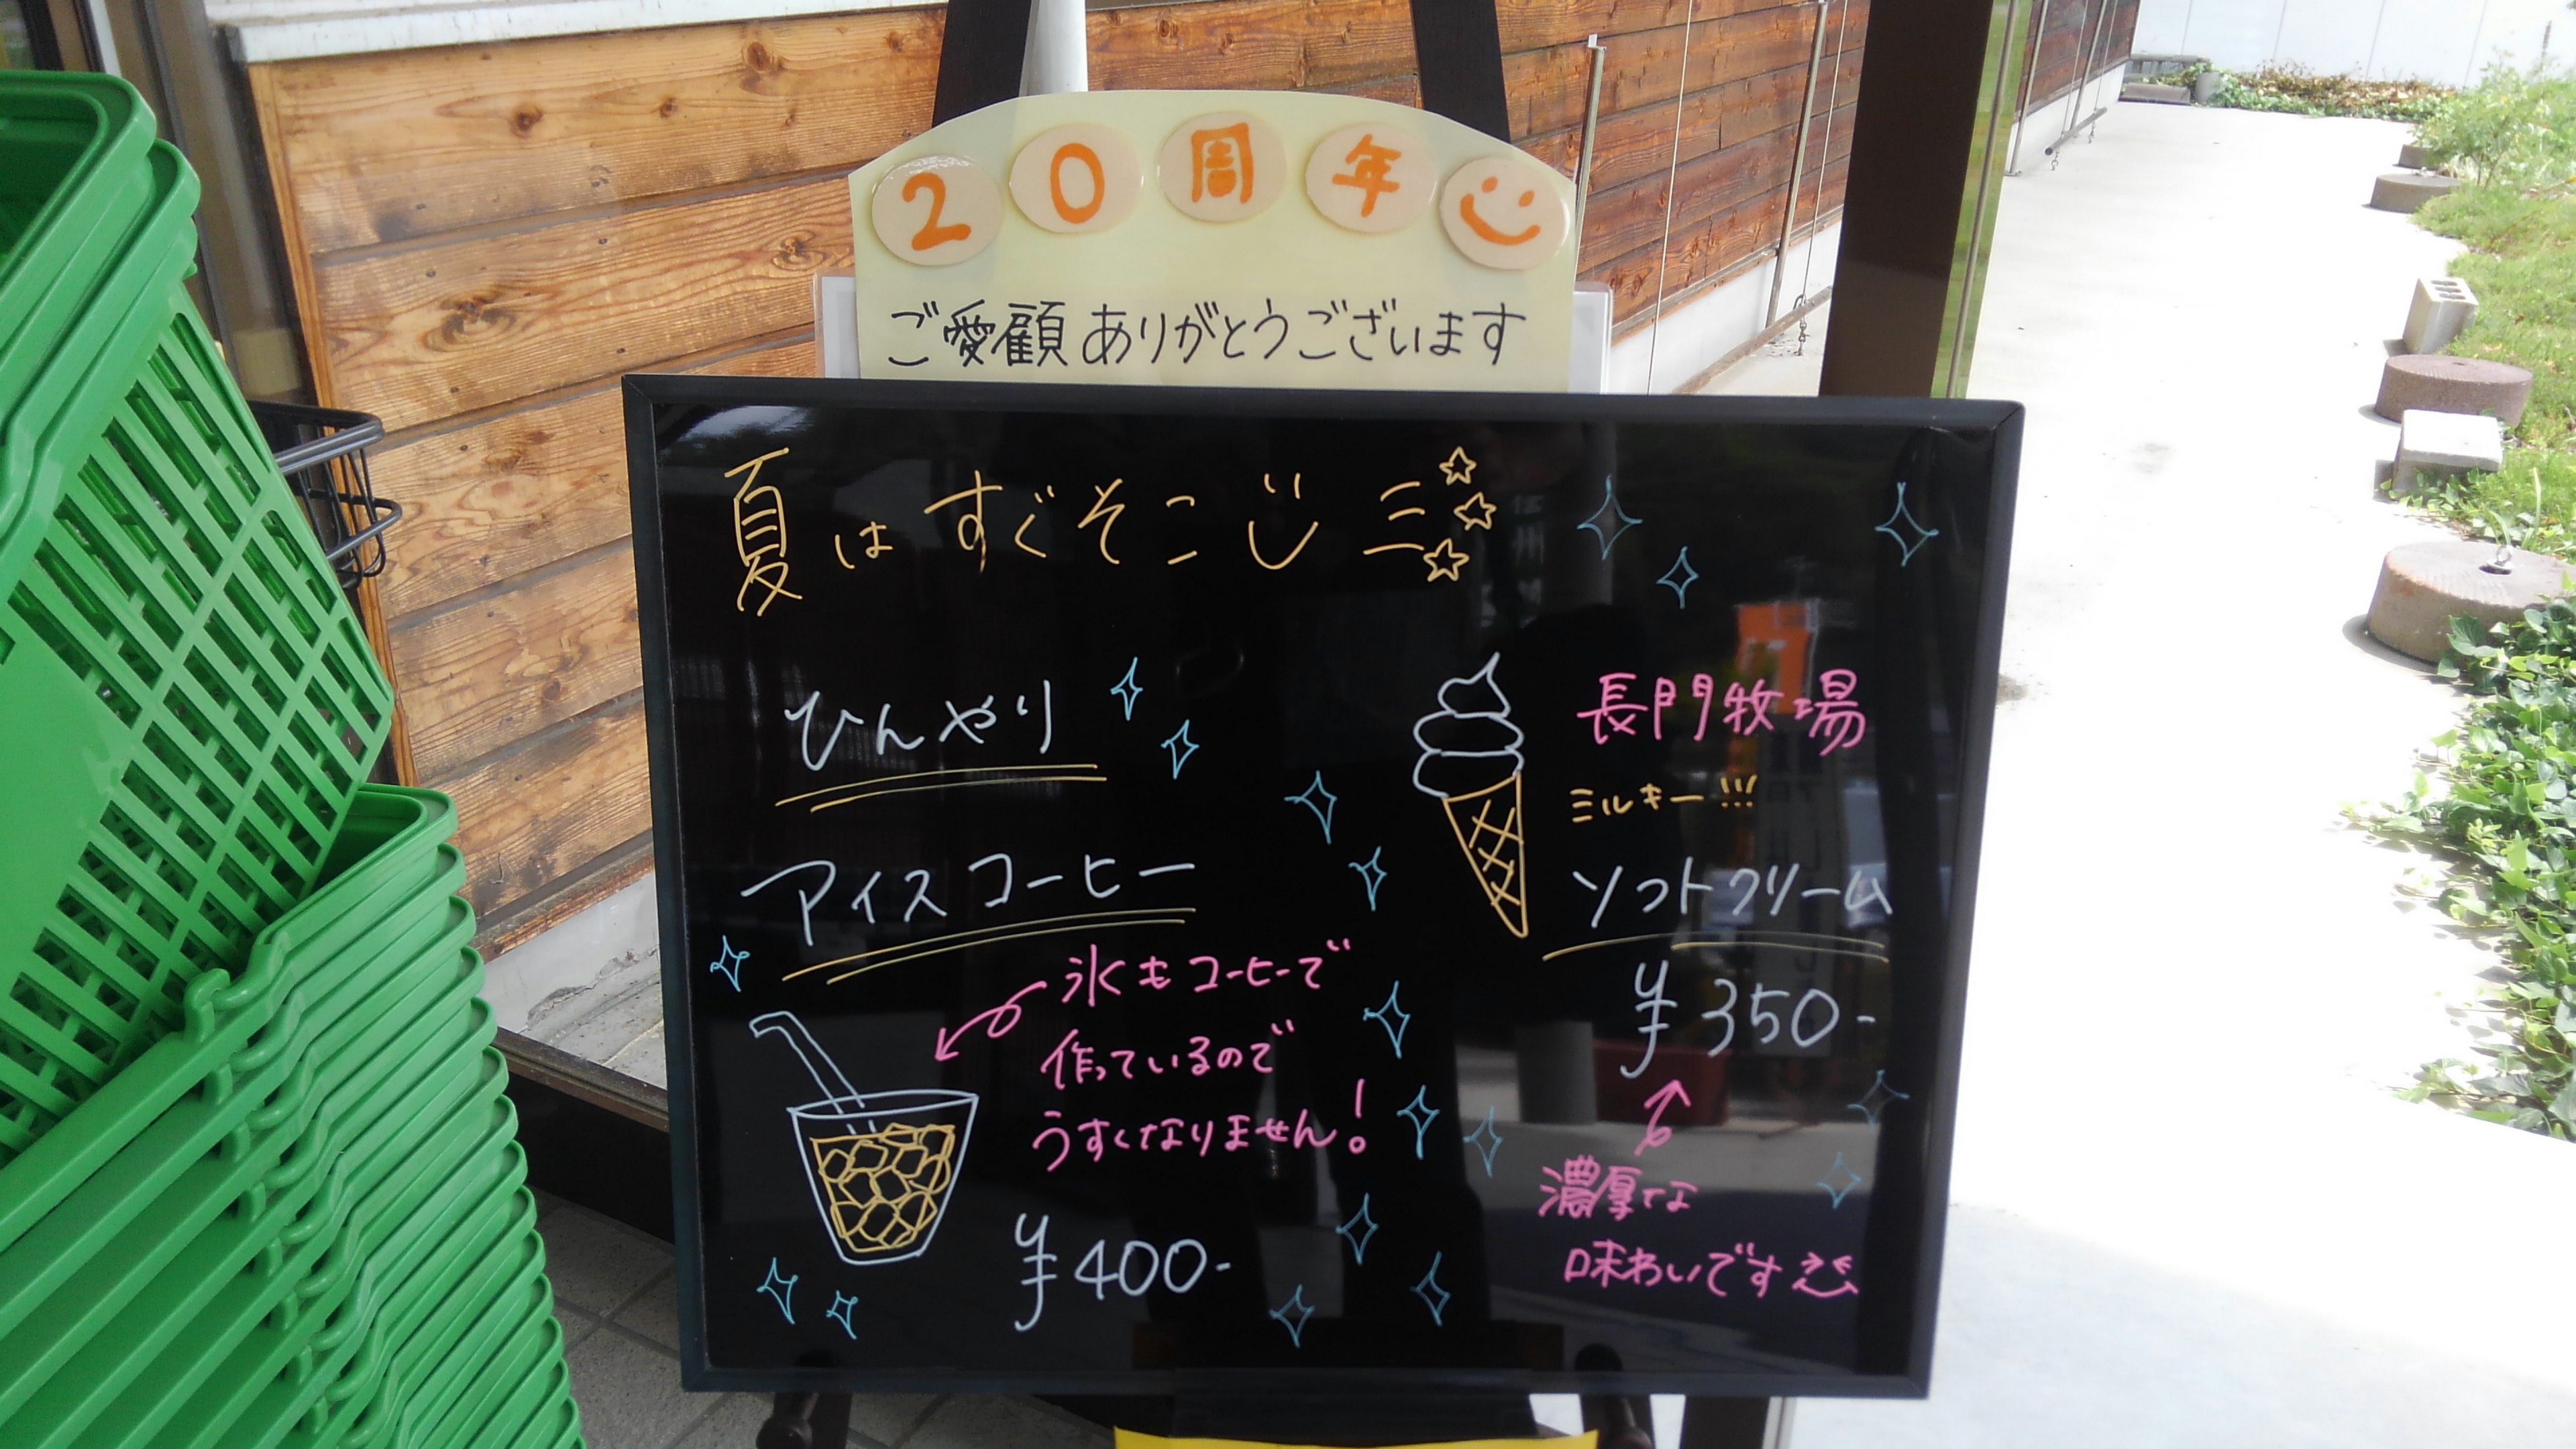 20周年
ご愛顧ありがとうございます
夏はすぐそこ
ひんやり
アイスコーヒー
氷もコーヒーで
作っているので
うすくなりません!
¥400-
長門牧場
ミルキー!!!
ソフトクリーム
¥350-
濃厚な
味わいです